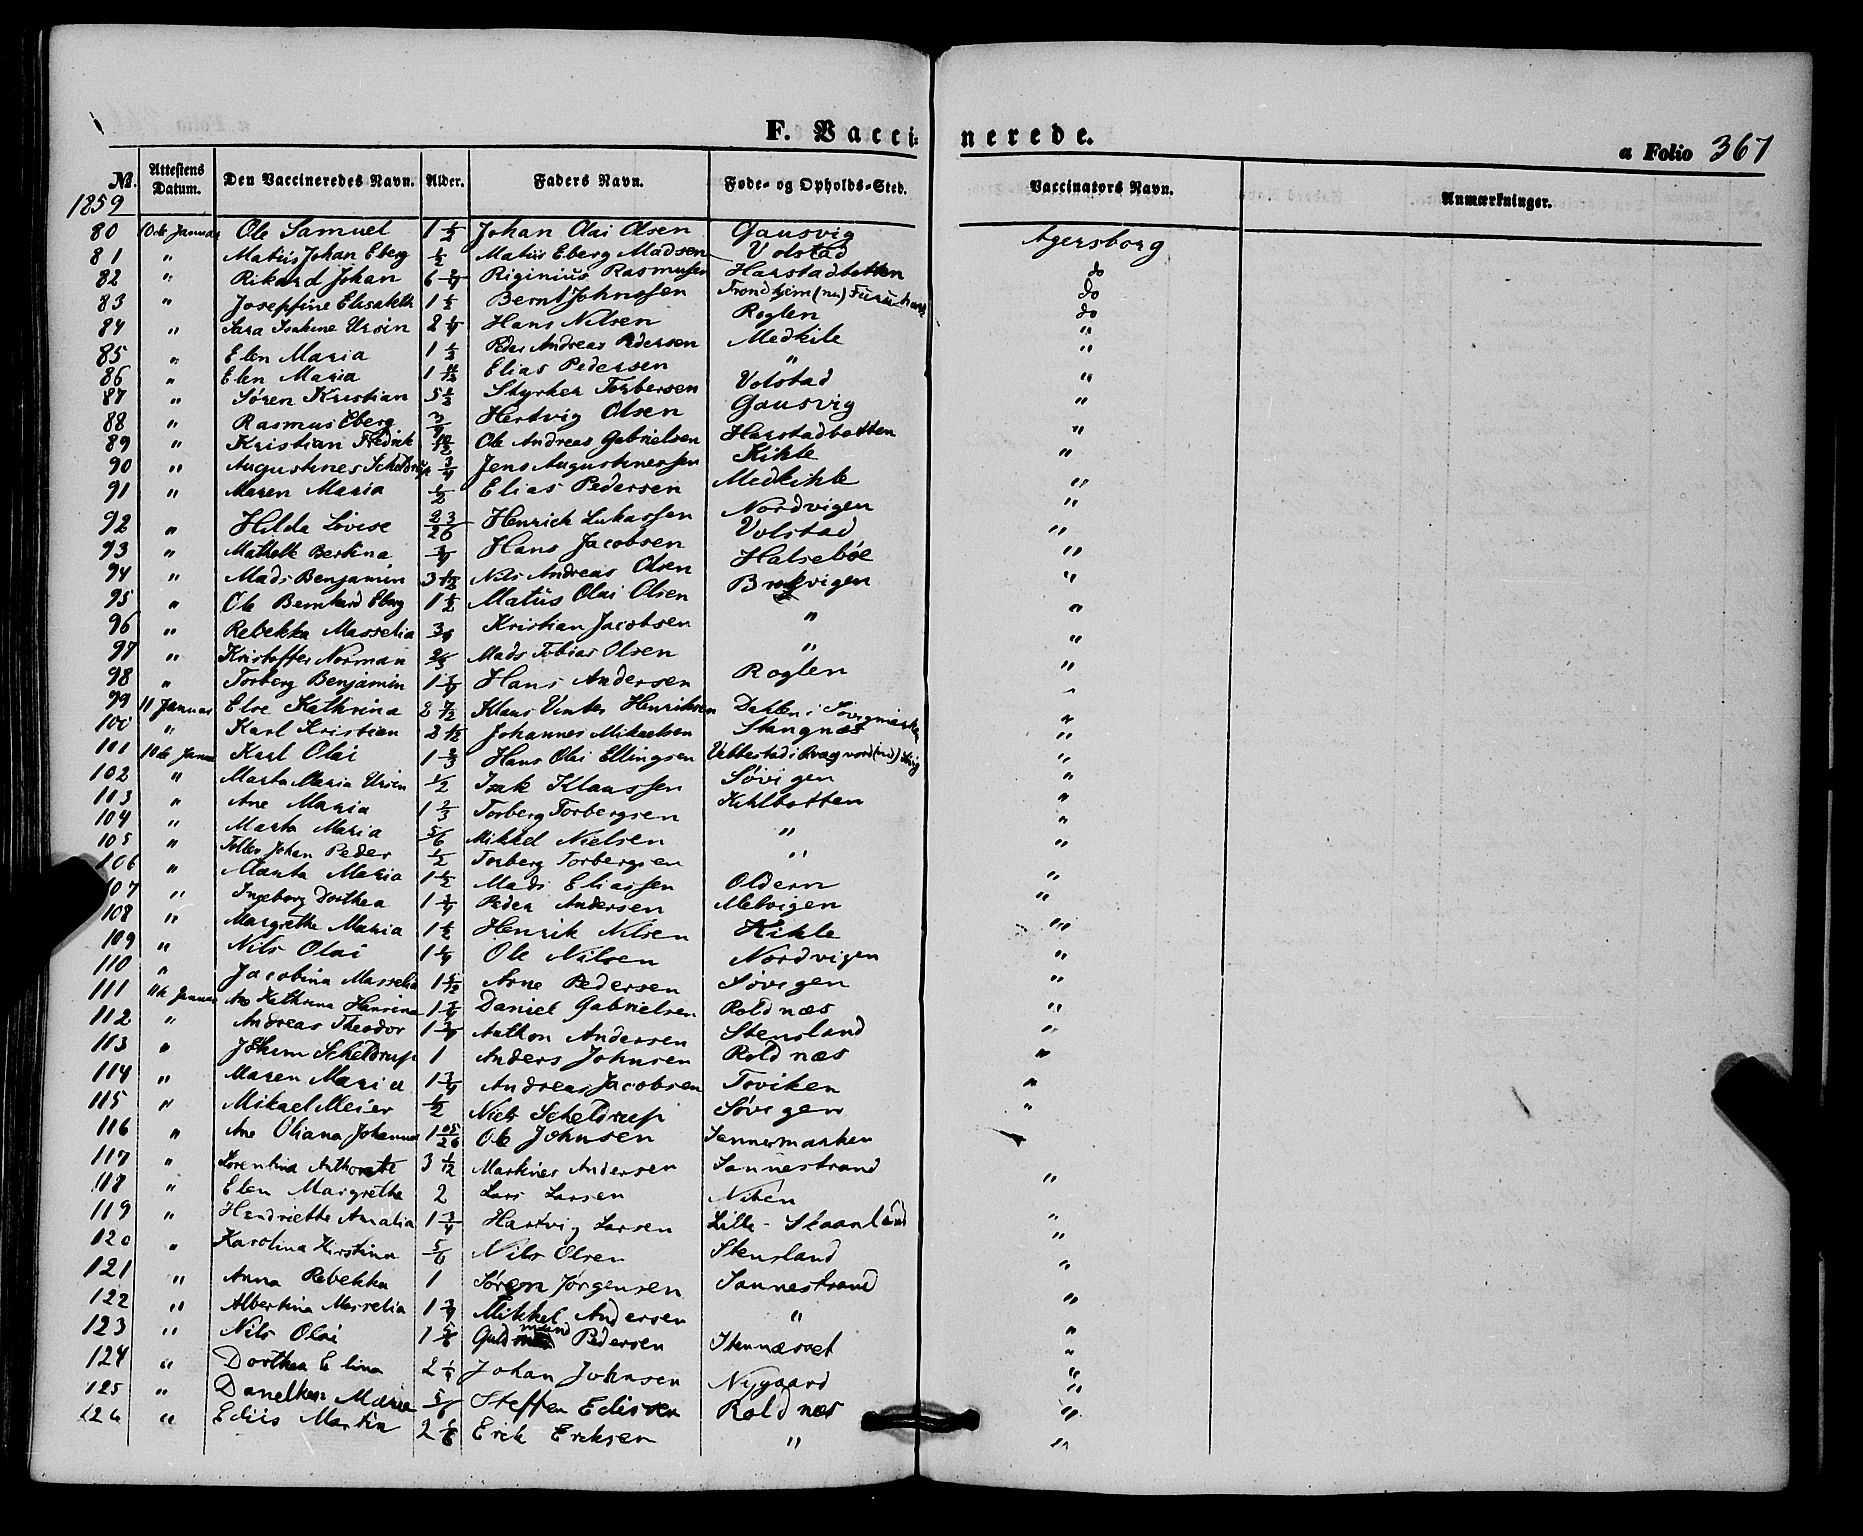 F. Vaccinerede.
a Folio 367
No. Attestens Datum. Den Vaccineredes Navn. Alder. Faders Navn. Føde- og Opholds-Sted. Vaccinators Navn. Anmærkninger.
1859
80 10de Januar Ole Samuel 1 1/2 Johan Olai Olsen Gausvig Agersborg
81 " Matius Johan Eberg 1/2 Matius Eberg Madsen Volstad do
82 " Rikard Johan 6 3/4 Riginius Rasmusen Harstadbotten do
83 " Josephine Elisabeth 1 1/2 Bernt Johnssen Trondhjem (nu) do
84 " Sara Isakine Ursin 2 1/4 Hans Nilsen Roglen "
85 " Elen Maria 1 1/2 Peder Andreas Pedersen Medkile "
86 " Elen Maria 1 11/12 Elias Pedersen " "
87 " Søren Kristian 5 1/2 Styrker Torbersen Volstad "
88 " Rasmus Eberg 3/4 Hertvig Olsen Gausvig "
89 " Kristian Fredrik 10/12 Ole Andreas Gabrielsen Harstadbotten "
90 " Augustines Scheldrup 3/4 Jens Augustinussen Kikle
91 " Maren Maria 1/2 Elias Pedersen Medkihle "
92 " Hilda Lovise 23/26 Henrich Lukassen Nordvigen "
93 " Mathilde Bertina 3/4 Hans Jacobsen Volstad "
94 " Mads Benjamin 3 1/12 Nils Andreas Olsen Halsebøe "
95 " Ole Bernhard Eberg 1 1/2 Matius Olai Olsen Brokvigen "
96 " Rebekka Masselia 3/4 Kristian Jacobsen " "
97 " Kristoffer Norman 2/3 Mads Tobias Olsen " "
98 " Torberg Benjamin 1 3/4 Hans Andersen Roglen "
99 11 Januar Else Kathrina 2 7/12 Klaus Vinter Henriksen Dalen i Sørvigmarken "
100 " Karl Kristian 2 1/12 Johannes Mikaelsen Stangnæs "
101 10de Januar Karl Olai 1 2/3 Hans Olai Ellingsen "
102 " Marta Maria Ursin 1/2 Isak Klaassen Søvigen "
113 " Ane Maria 1 2/3 Torberg Torbergsen Kihlbotten "
104 " Marta Maria 5/6 Mikkel Nielsen " "
105 " Johan Peder 1/2 Torberg Torbergsen " "
106 " Marta Maria 1 1/2 Mads Eliassen Oldern "
107 " Ingeborg Dorthea 1 3/4 Peder Andersen Melvigen "
108 " Margrethe Maria 1 1/2 Henrik Nilsen Kikle "
109 " Nils Olai 1 1/4 Ole Nilsen Nordvigen "
110 " Jacobina Masselia 1 5/12 Arne Pedersen Søvigen "
111 11te Januar Ane Kathrina Hansina 1 3/4 Daniel Gabrielsen Roldnæs "
112 " Andreas Theodor 1 3/4 Anthon Andersen Stensland "
113 " Jokum Scheldrup 1 Anders Johnsen Roldnæs "
114 " Maren Maria 1 3/4 Andreas Jacobsen Toviken "
115 " Mikael Meier 1/2 Niels Scheldrup Søvigen "
116 " Ane Oliana Johanna Ole Johnsen Sannesmarken "
117 " Lorentina Anthonete 3 1/12 Markines Andersen Sannestrand "
118 " Elen Margrethe 2 Lars Larsen
119 " Hendriette Amalia 1 3/4 Hartvig Larsen Lille-Skaanland "
120 " Karolina Kirstina 5/6 Nils Olsen Stensland "
121 " Anna Rebekka 1 Søren Jørgensen Sannestrand "
122 " Albertina Masselia 1 3/4 Mikkel Andersen " "
123 " Nils Olai 1 5/6 Guldmund Pedersen Stennæsset "
124 " Dorthea Elina 2 1/4 Johan Johnsen Nygaard "
125 " Danelken Maria 5/6 Steffen Edissen Roldnæs "
126 " Ediis Martin 2 1/6 Erik Eriksen " "